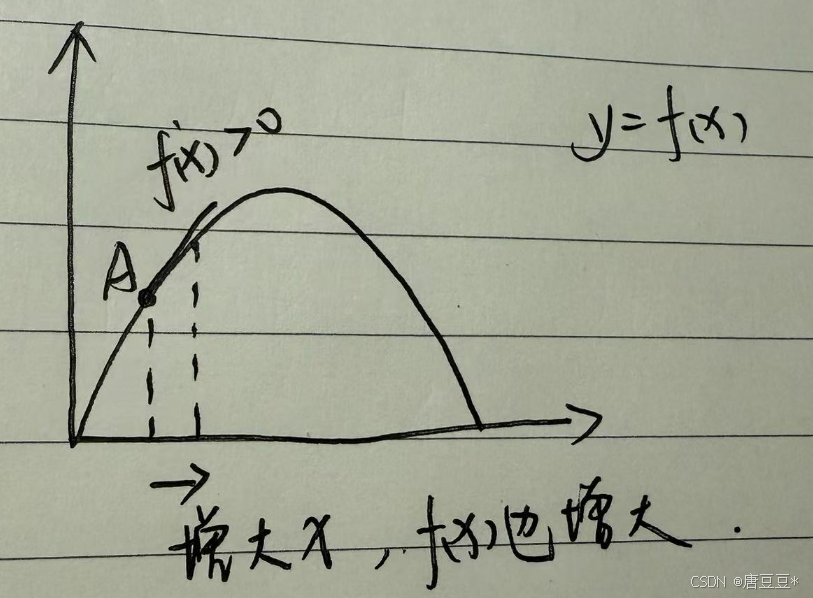 f'(x)>0
y=f(x)
A
增大x,f(x)也增大.
CSDN @唐豆豆*